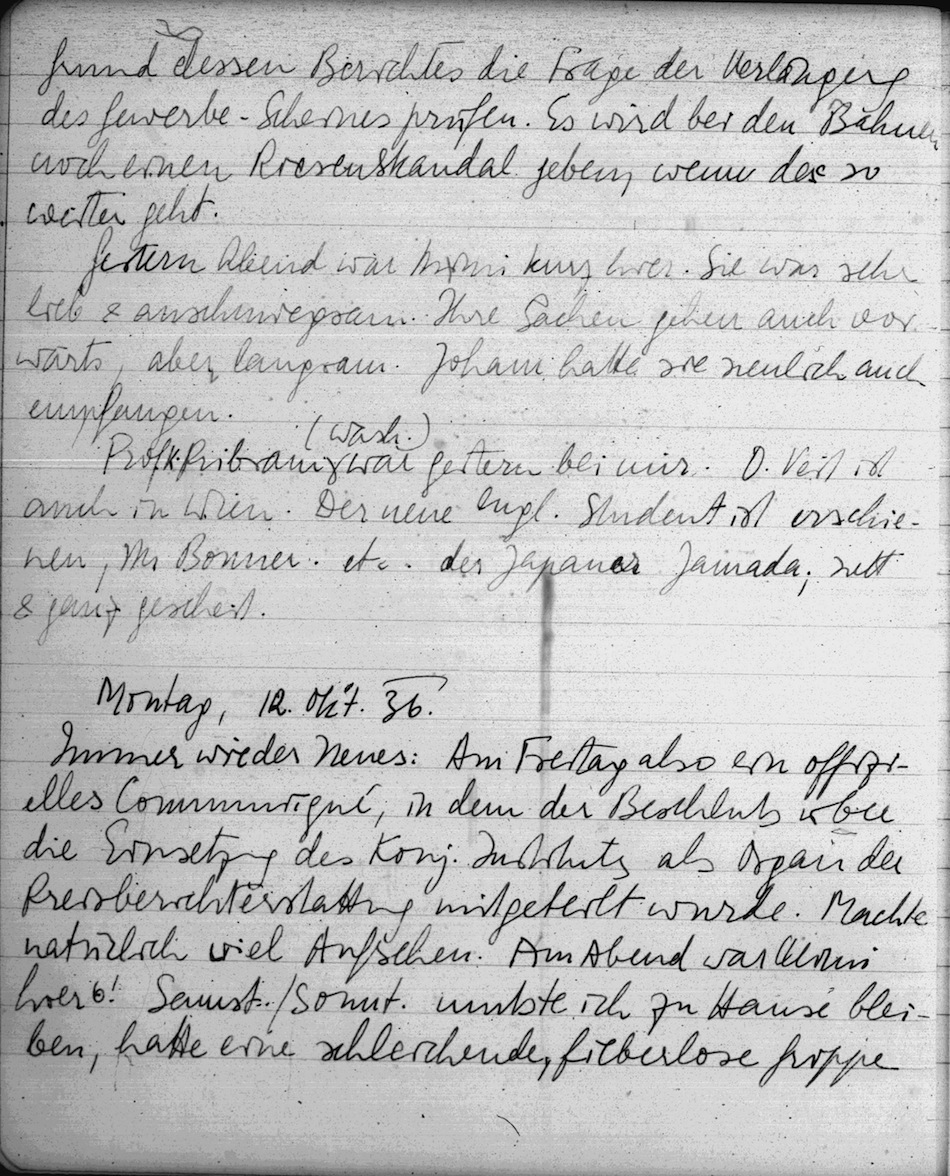 grund dessen Berichtes die Frage der Verlängerg
des Gewerbe-Scheines prüfen. Es wird bei den Bühnen
noch einen Riesenskandal geben, wenn das so
weiter geht.
Gestern Abend war Mimi kurz hier. Sie war sehr
lieb & anschmiegsam. Ihre Sachen gehen auch vor-
wärts, aber langsam. Joham hatte sie neulich auch
empfangen.
(Wash.)
Prof. K. Pribram war gestern bei mir. O. Veit ist
auch in Wien. Der neue engl. Student ist erschie-
nen, Mr Bonner. etc. der Japaner Jamada; nett
& ganz gescheit.
Montag, 12. Okt. 36.
Immer wieder Neues: Am Freitag also ein offizi-
elles Communiqué, in dem der Beschluß über
die Einsetzg des Konj. Instituts als Organ der
Preisberichterstattung mitgeteilt wurde. Machte
natürlich viel Aufsehen. Am Abend war Mimi
hier! Samst./Sonnt. mußte ich zu Hause blei-
ben, hatte eine schleichende, fieberlose Grippe